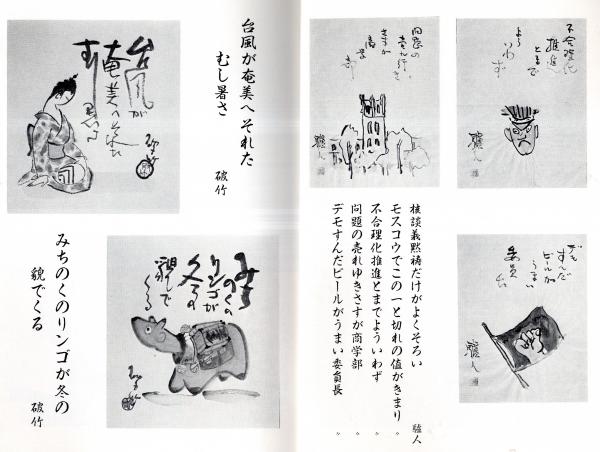 不合理化
推進
とまで
よう
いわず
問題の
売れ行き
さすが
商学
部
デモ
すんだ
ビールが
うまい
委員
長
核談義黙祷だけがよくそろい 驢人
モスコウでこの一と切れの値がきまり 〃
不合理化推進とまでよういわず 〃
問題の売れゆきさすが商学部 〃
デモすんだビールがうまい委員長 〃
台風が奄美へそれた
むし暑さ
破竹
台風が
奄美へそれた
みちのくの
リンゴが
冬の
貌で
くる
みちのくのリンゴが冬の
貌でくる
破竹